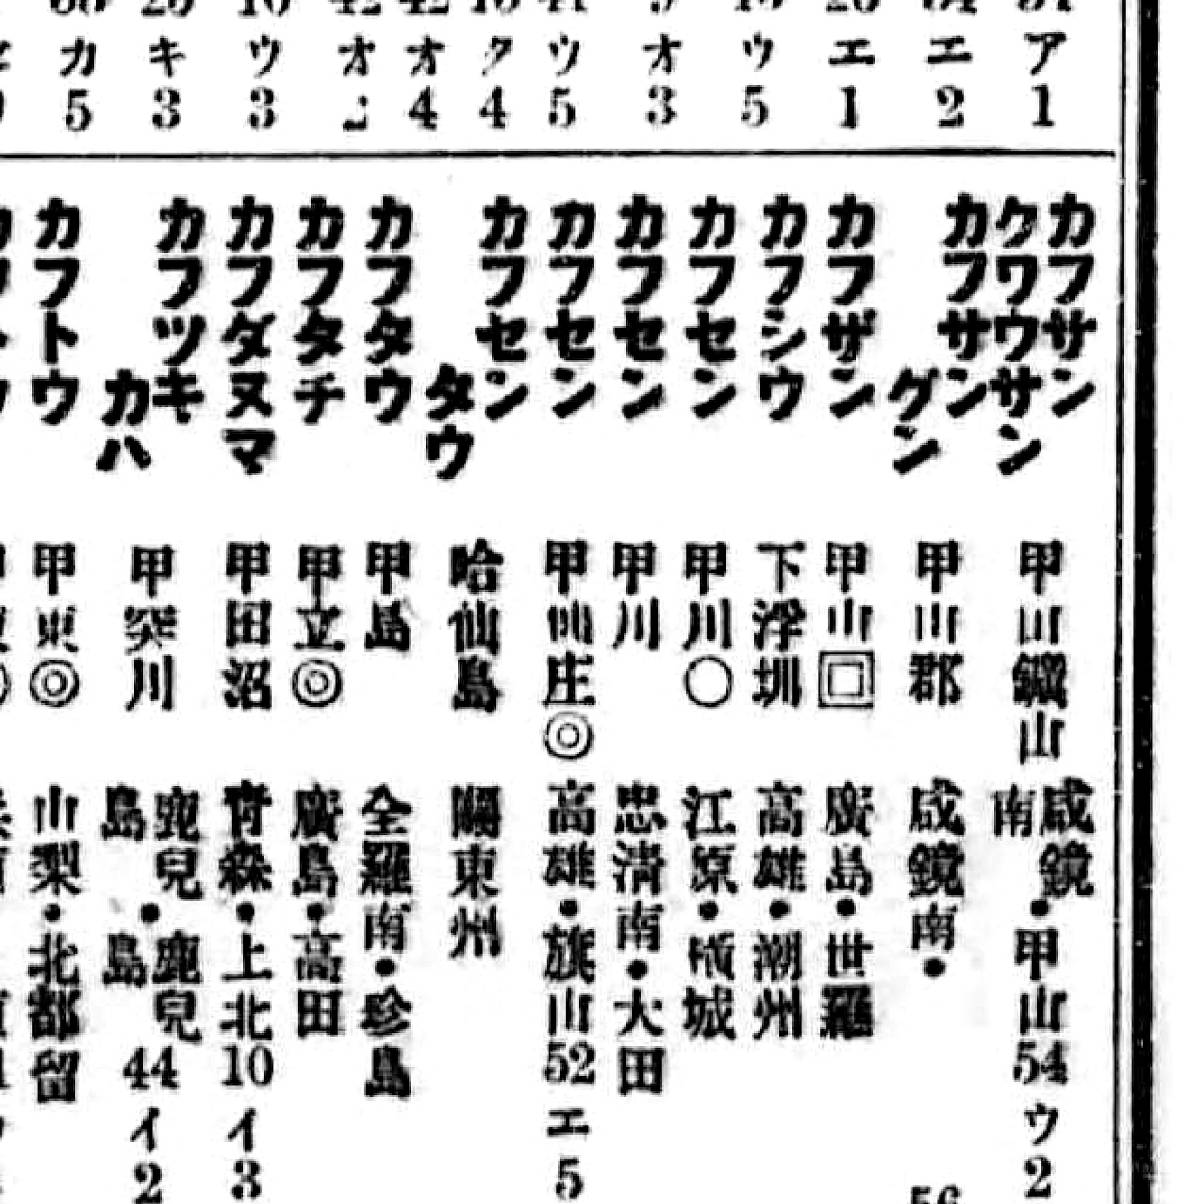 ア1
エ2
エ1
ウ5
オ3
ウ5
ク4
オ4
オ
ウ3
キ3
カ5
カフサン
クワウサン
甲山鑛山
咸鏡南・甲山54ウ2
カフサングン
甲山郡
咸鏡南・
カフザン
甲山回
廣島・世羅
カフシウ
下浮圳
高雄・潮州
カフセン
甲川○
江原・橫城
カフセン
甲川
忠淸南・大田
カフセン
甲仙庄◎
高雄・旗山52エ5
カフセンタウ
哈仙島
關東州
カフタウ
甲島
全羅南・珍島
カフタチ
甲立◎
廣島・高田
カフダヌマ
甲田沼
靑森・上北10イ3
カフツキカハ
甲突川
鹿兒島・鹿兒島44イ2
カフトウ
甲東◎
山梨・北都留